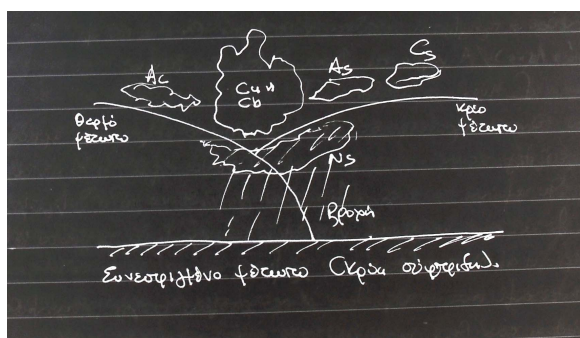 Ac
Cu ή
Cb
As
Cs
θερμό
μέτωπο
κρύο
μέτωπο
Ns
Βροχή
Συνεσφιγμένο μέτωπο (κρύα σύσφιξη).